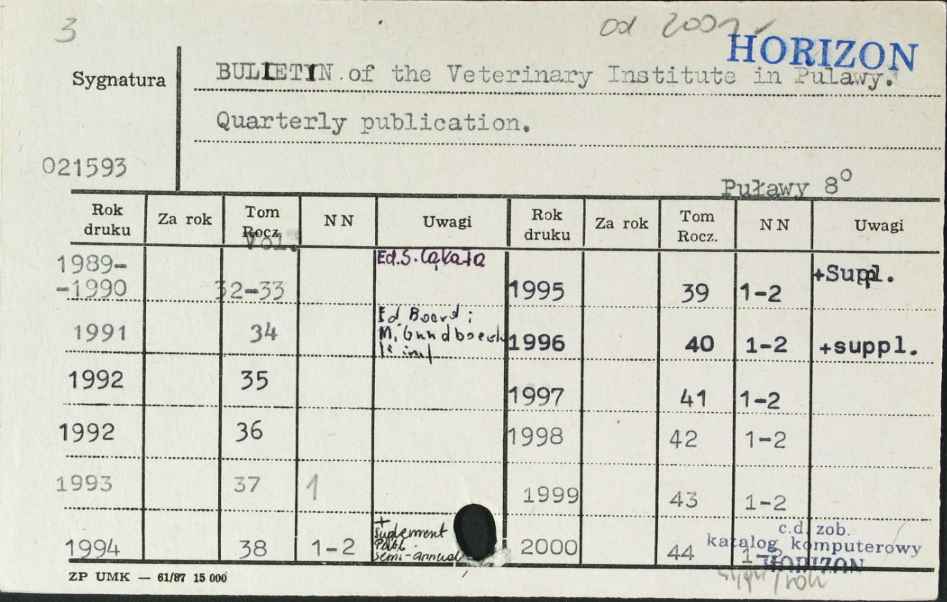 3
od 2001
HORIZON
Sygnatura
BULLETIN of the Veterinary Institute in Pulawy.
Quarterly publication.
021593
Puławy 8°
Rok druku Za rok Tom Rocz. NN Uwagi Rok druku Za rok Tom Rocz. NN Uwagi
Vol.
1989-
-1990 32-33 Ed. S. Cąkała 1995 39 1-2 +Suppl.
1991 34 Ed Board: M. 1996 40 1-2 +suppl.
1992 35 1997 41 1-2
1992 36 1998 42 1-2
1993 37 1 1999 43 1-2
1994 38 1-2 + suplement Publ. semi-annual 2000 44 1-2
c.d. zob.
katalog komputerowy
HORIZON
ZP UMK — 61/87 15 000